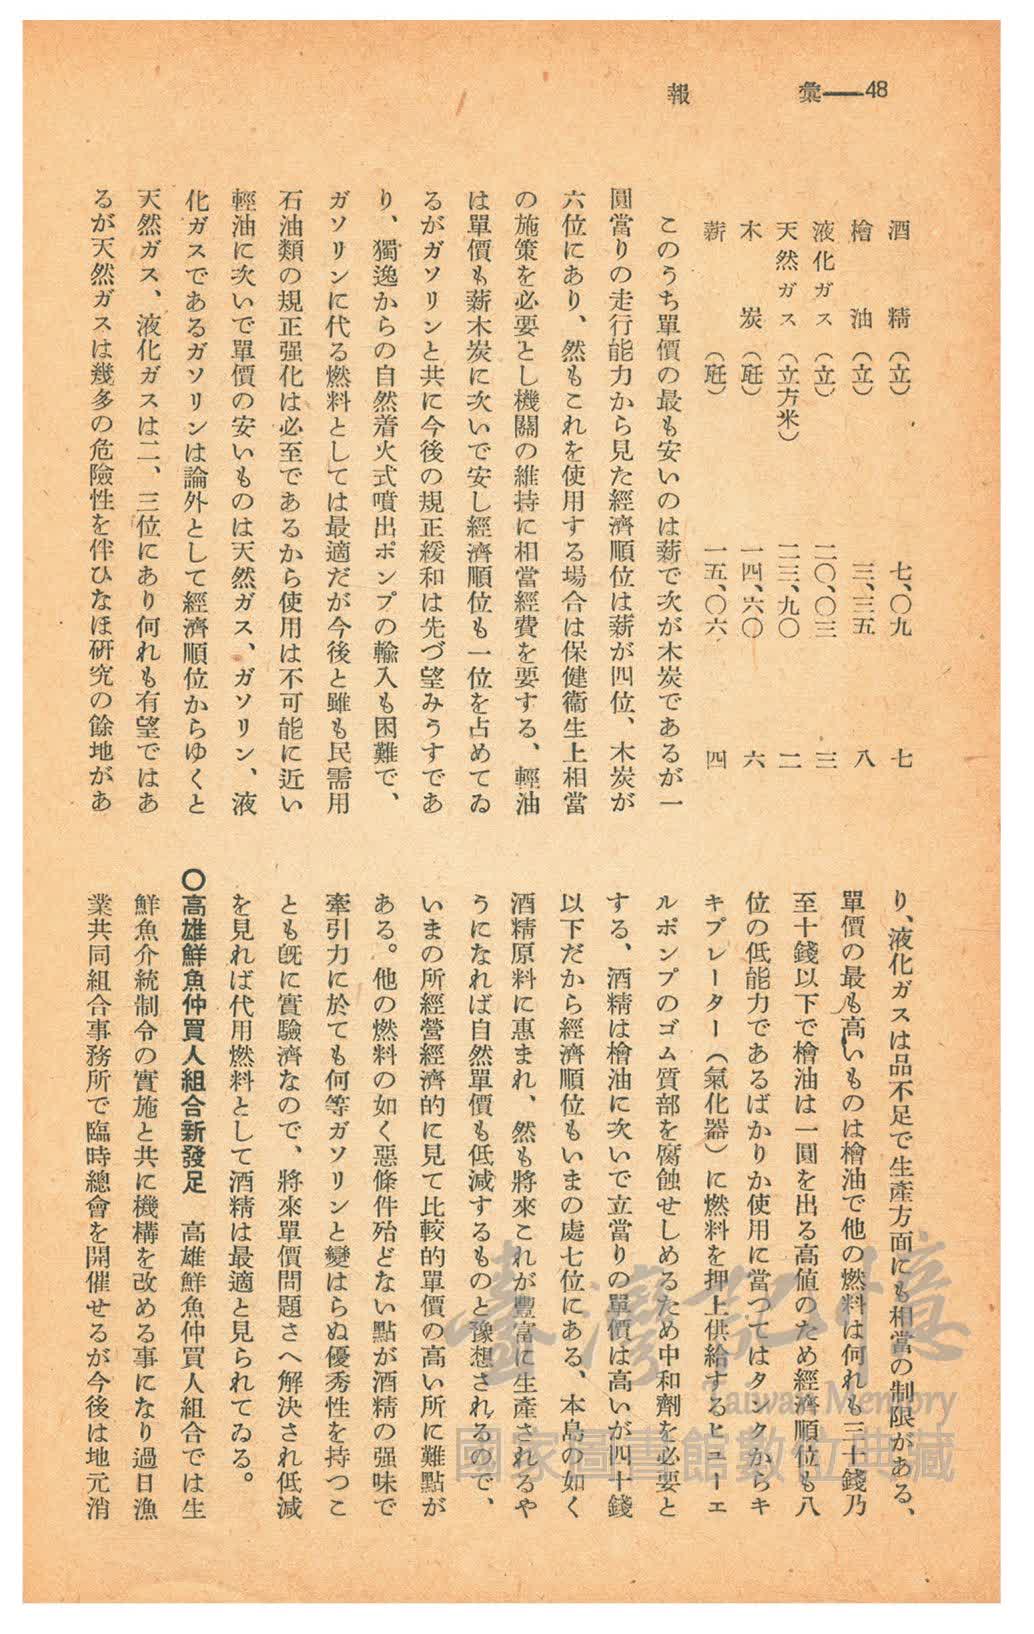 彙報 —— 48
酒精（立） 七、〇九 七
檜油（立） 三、三五 八
液化ガス（立） 二〇、〇三 三
天然ガス（立方米） 二三、九〇 二
木炭（瓩） 一四、六〇 六
薪（瓩） 一五、〇六 四
このうち單價の最も安いのは薪で次が木炭であるが一
圓當りの走行能力から見た經濟順位は薪が四位、木炭が
六位にあり、然もこれを使用する場合は保健衞生上相當
の施策を必要とし機關の維持に相當經費を要する、輕油
は單價も薪木炭に次いで安し經濟順位も一位を占めてゐ
るがガソリンと共に今後の規正緩和は先づ望みうすであ
り、獨逸からの自然着火式噴出ポンプの輸入も困難で、
ガソリンに代る燃料としては最適だが今後と雖も民需用
石油類の規正强化は必至であるから使用は不可能に近い
輕油に次いで單價の安いものは天然ガス、ガソリン、液
化ガスであるガソリンは論外として經濟順位からゆくと
天然ガス、液化ガスは二、三位にあり何れも有望ではあ
るが天然ガスは幾多の危險性を伴ひなほ研究の餘地があ
り、液化ガスは品不足で生產方面にも相當の制限がある、
單價の最も高いものは檜油で他の燃料は何れも三十錢乃
至十錢以下で檜油は一圓を出る高値のため經濟順位も八
位の低能力であるばかりか使用に當つてはタンクからキ
キプレーター（氣化器）に燃料を押上供給するヒューエ
ルポンプのゴム質部を腐蝕せしめるため中和劑を必要と
する、酒精は檜油に次いで立當りの單價は高いが四十錢
以下だから經濟順位もいまの處七位にある、本島の如く
酒精原料に惠まれ、然も將來これが豐富に生產されるや
うになれば自然單價も低減するものと豫想されるので、
いまの所經營經濟的に見て比較的單價の高い所に難點が
ある。他の燃料の如く惡條件殆どない點が酒精の强味で
牽引力に於ても何等ガソリンと變はらぬ優秀性を持つこ
とも旣に實驗濟なので、將來單價問題さへ解決され低減
を見れば代用燃料として酒精は最適と見られてゐる。
〇高雄鮮魚仲買人組合新發足　高雄鮮魚仲買人組合では生
鮮魚介統制令の實施と共に機構を改める事になり過日漁
業共同組合事務所で臨時總會を開催せるが今後は地元消
臺灣記憶
Taiwan Memory
國家圖書館數位典藏